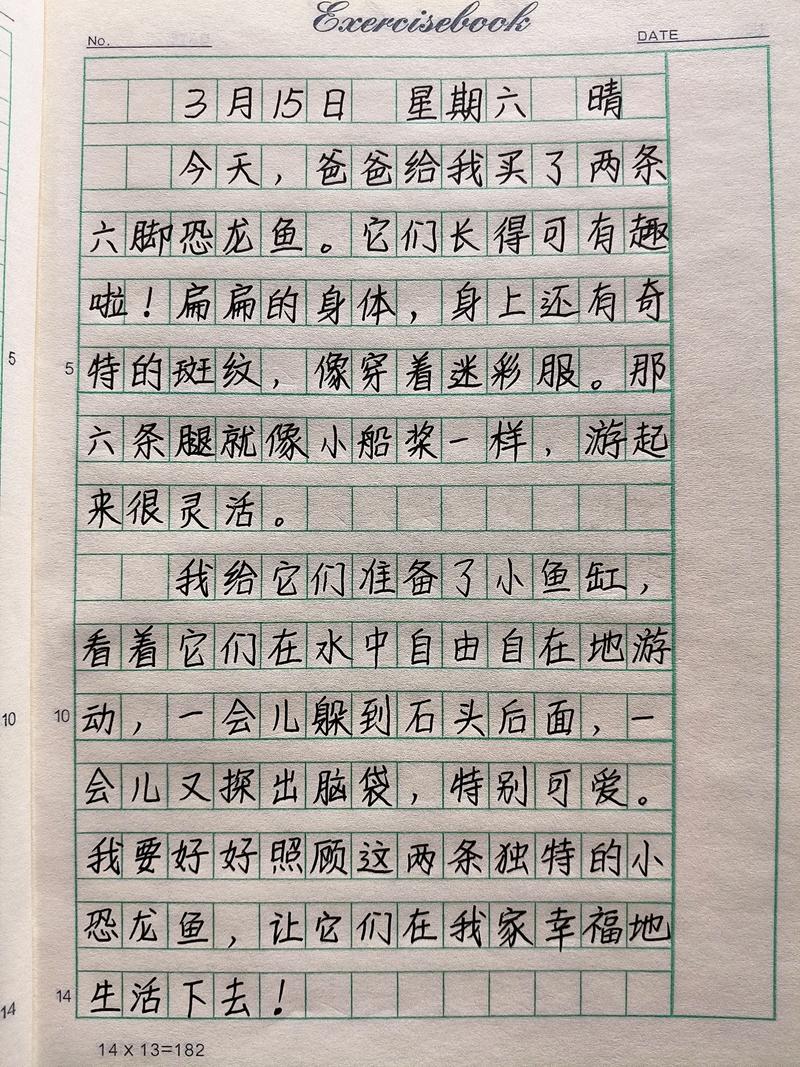 Exercisebook
No. DATE
3月15日 星期六 晴
今天，爸爸给我买了两条
六脚恐龙鱼。它们长得可有趣
啦！扁扁的身体，身上还有奇
5 特的斑纹，像穿着迷彩服。那
六条腿就像小船桨一样，游起
来很灵活。
我给它们准备了小鱼缸，
看着它们在水中自由自在地游
10 动，一会儿躲到石头后面，一
会儿又探出脑袋，特别可爱。
我要好好照顾这两条独特的小
恐龙鱼，让它们在我家幸福地
14 生活下去！
14×13=182
5
10
14